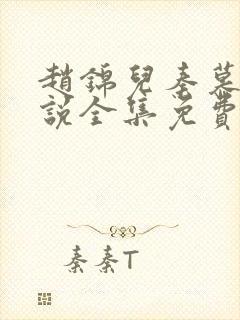 趙錦兒秦慕
說全集免費
秦秦T